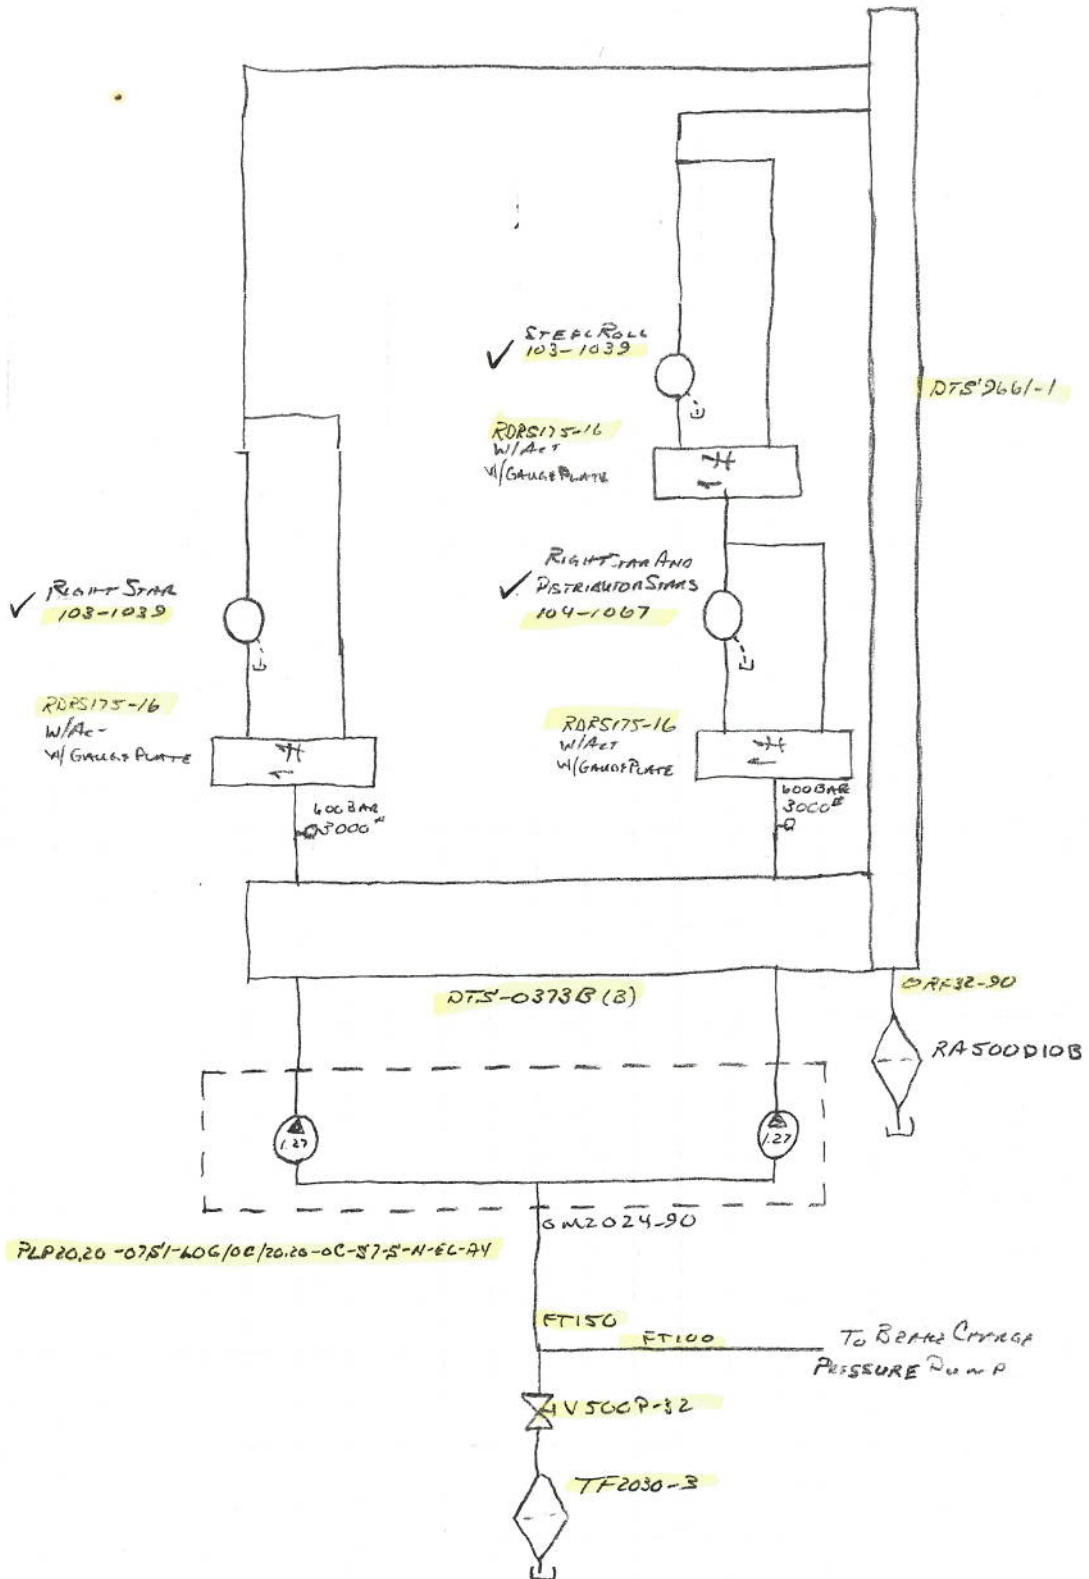 STEEL ROLL
103-1039
DTS'9661-1
RDRS175-16
W/ACT
W/GAUGE PLATE
RIGHT STAR AND
DISTRIBUTOR STARS
104-1067
RIGHT STAR
103-1039
RDRS175-16
W/AC-
W/GAUGE PLATE
RDRS175-16
W/ACT
W/GAUGE PLATE
600 BAR
3000#
600 BAR
3000#
DTS-0373B (B)
ORF32-90
RA500D10B
1.27
1.27
GM2024-90
FT150
FT100
TO BRAKE CHARGE
PRESSURE PUMP
TF2030-3